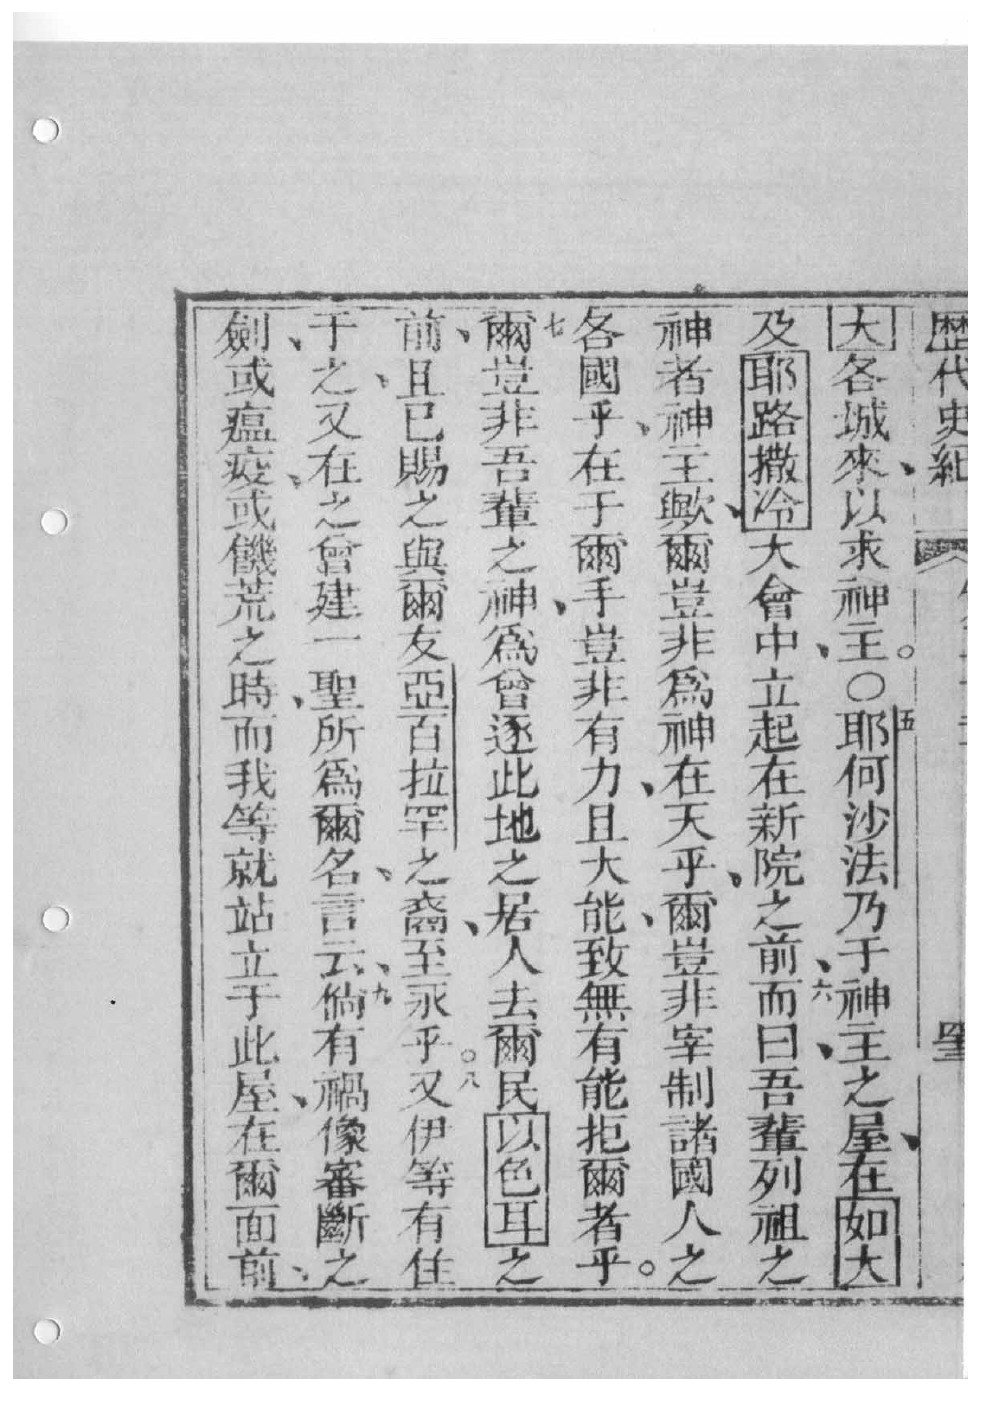 歷代史紀
大各城來以求神主。〇五耶何沙法乃于神主之屋、在如大
及耶路撒冷大會中、立起在新院之前、六而曰、吾輩列祖之
神者神主歟、爾豈非爲神在天乎、爾豈非宰制諸國人之
各國乎、在于爾手豈非有力、且大能、致無有能拒爾者乎。
七爾豈非吾輩之神、爲曾逐此地之居人去爾民以色耳之
前、且已賜之與爾友亞百拉罕之裔、至永乎。八又伊等有住
于之、又在之曾建一聖所爲爾名、言云、九倘有禍像審斷之
劍、或瘟疫、或饑荒之時、而我等就站立于此屋、在爾面前、